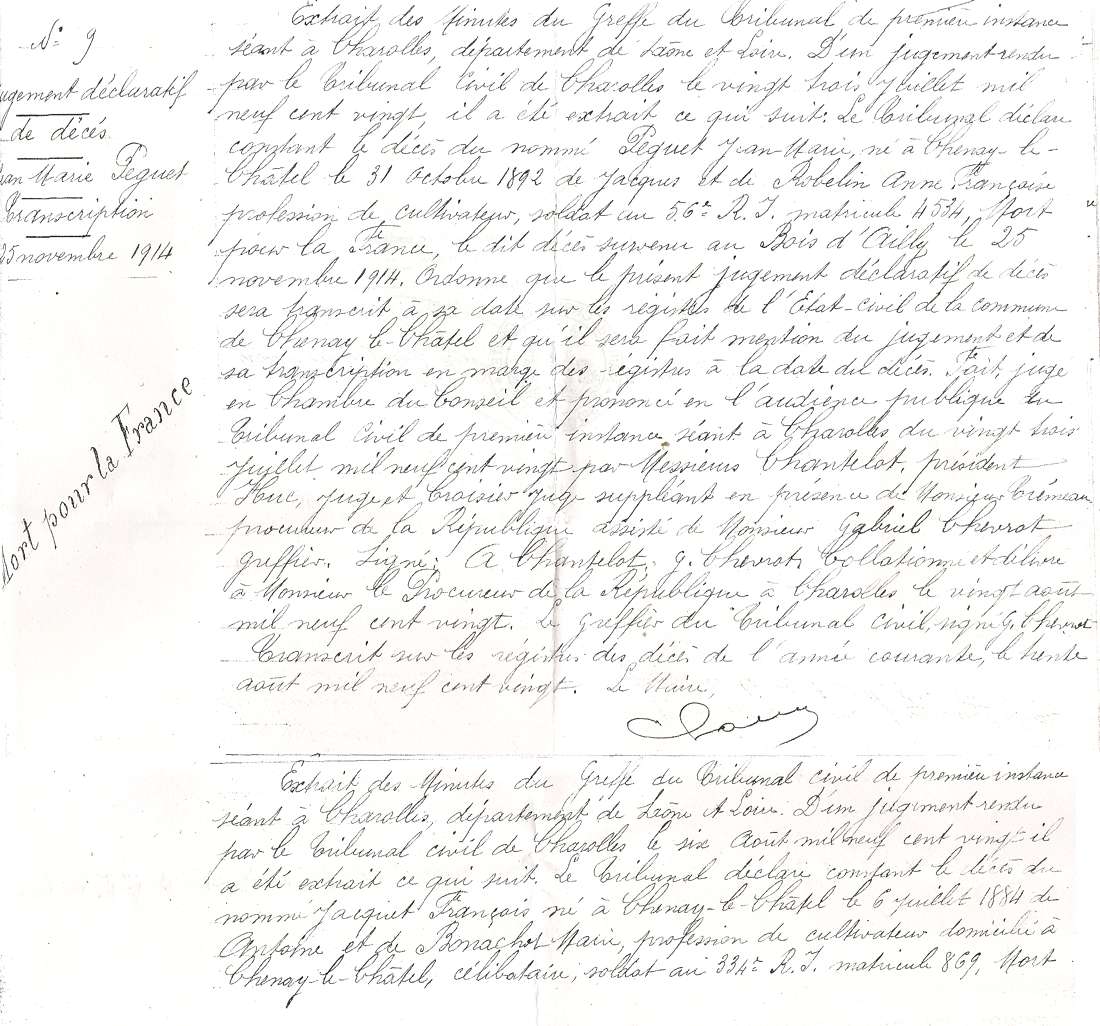 N° 9
ugement déclaratif
de décés
ean Marie Péguet
Transcription
25 novembre 1914
Mort pour la France
Extrait des Minutes du Greffe du Tribunal de première instance
séant à Charolles, département de Saône et Loire. D'un jugement rendu
par le Tribunal Civil de Charolles le vingt trois Juillet mil
neuf cent vingt, il a été extrait ce qui suit: Le Tribunal déclare
constant le décès du nommé Péguet Jean Marie, né à Chenay-le-
Châtel le 31 Octobre 1892 de Jacques et de Robelin Anne Françoise
profession de cultivateur, soldat au 56e R. I. matricule 4534, Mort
pour la France, le dit décès survenu au Bois d'Ailly le 25
novembre 1914. Ordonne que le présent jugement déclaratif de décès
sera transcrit à sa date sur les régistres de l'Etat-civil de la commune
de Chenay le-Châtel et qu'il sera fait mention du jugement et de
sa transcription en marge des régistres à la date du décés. Fait, jugé
en Chambre du Conseil et prononcé en l'audience publique du
Tribunal Civil de première instance séant à Charolles du vingt trois
Juillet mil neuf cent vingt par Messieurs Chantelot, président
Huc, Juge et Croisier Juge suppléant en présence de Monsieur Trémeau
procureur de la République assisté de Monsieur Gabriel Chevrot
greffier. Signé: A Chantelot, G. Chevrot, Collationné et délivré
à Monsieur le Procureur de la République à Charolles le vingt août
mil neuf cent vingt. Le greffier du Tribunal civil, signé G. Chevrot
Transcrit sur les régistres des décès de l'année courante, le trente
août mil neuf cent vingt. Le Maire,
Extrait des Minutes du Greffe du Tribunal civil de première instance
séant à Charolles, département de Saône et Loire. D'un jugement rendu
par le Tribunal civil de Charolles le six Août mil neuf cent vingt il
a été extrait ce qui suit. Le Tribunal déclare constant le décès du
nommé Jacquet François né à Chenay-le-Châtel le 6 Juillet 1884 de
Antoine et de Bonachot Marie, profession de cultivateur domicilié à
Chenay-le-Châtel, célibataire, soldat au 334e R. I. matricule 869, Mort